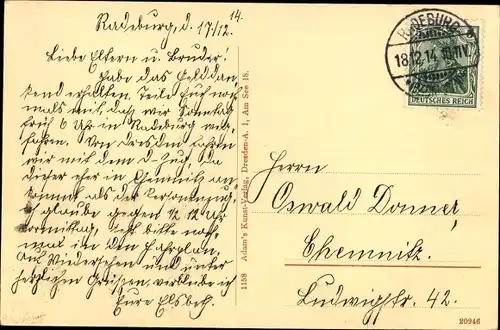 Radeburg, d. 17/12. 14.
Liebe Eltern u. Bruder!
Habe das Geld dan-
kend erhalten. Teile Euch noch-
mals mit, daß wir Sonntag
früh 6 Uhr in Radeburg weg-
fahren. Von Dresden fahren
wir mit dem D-Zug, da
dieser eher in Chemnitz an-
kommt als der Personenzug,
ich glaube gegen 1/2 12 Uhr
vormittag. Seht bitte noch-
mal in den Fahrplan.
Auf Wiedersehen und unser
herzlichen Grüßen, verbleibe ich
Eure Elsbeth.
1158 Adam's Kunst-Verlag, Dresden-A. 1, Am See 18.
RADEBURG
18.12.14. 10-11 V.
DEUTSCHES REICH
Herrn
Oswald Donner,
Chemnitz.
Ludwigstr. 42.
20946